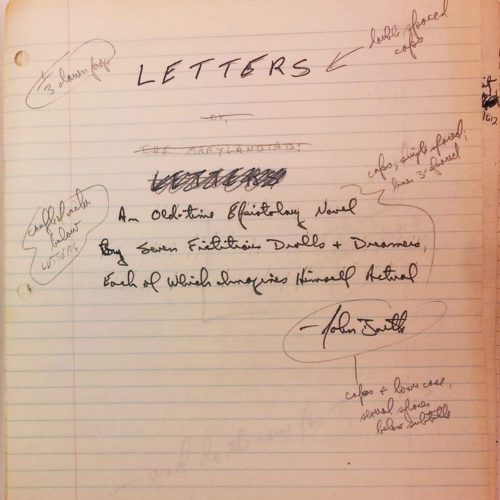 1/3 down page
LETTERS
double spaced
caps
or,
THE MARYLANDIAD:
LETTERS
caps, single-spaced,
lines 3-spaced
An Old-time Epistolary Novel
By Seven Fictitious Drolls & Dreamers,
Each of Which Imagines Himself Actual
below
LETTERS
—John Barth
caps & lower case,
several spaces
below subtitle